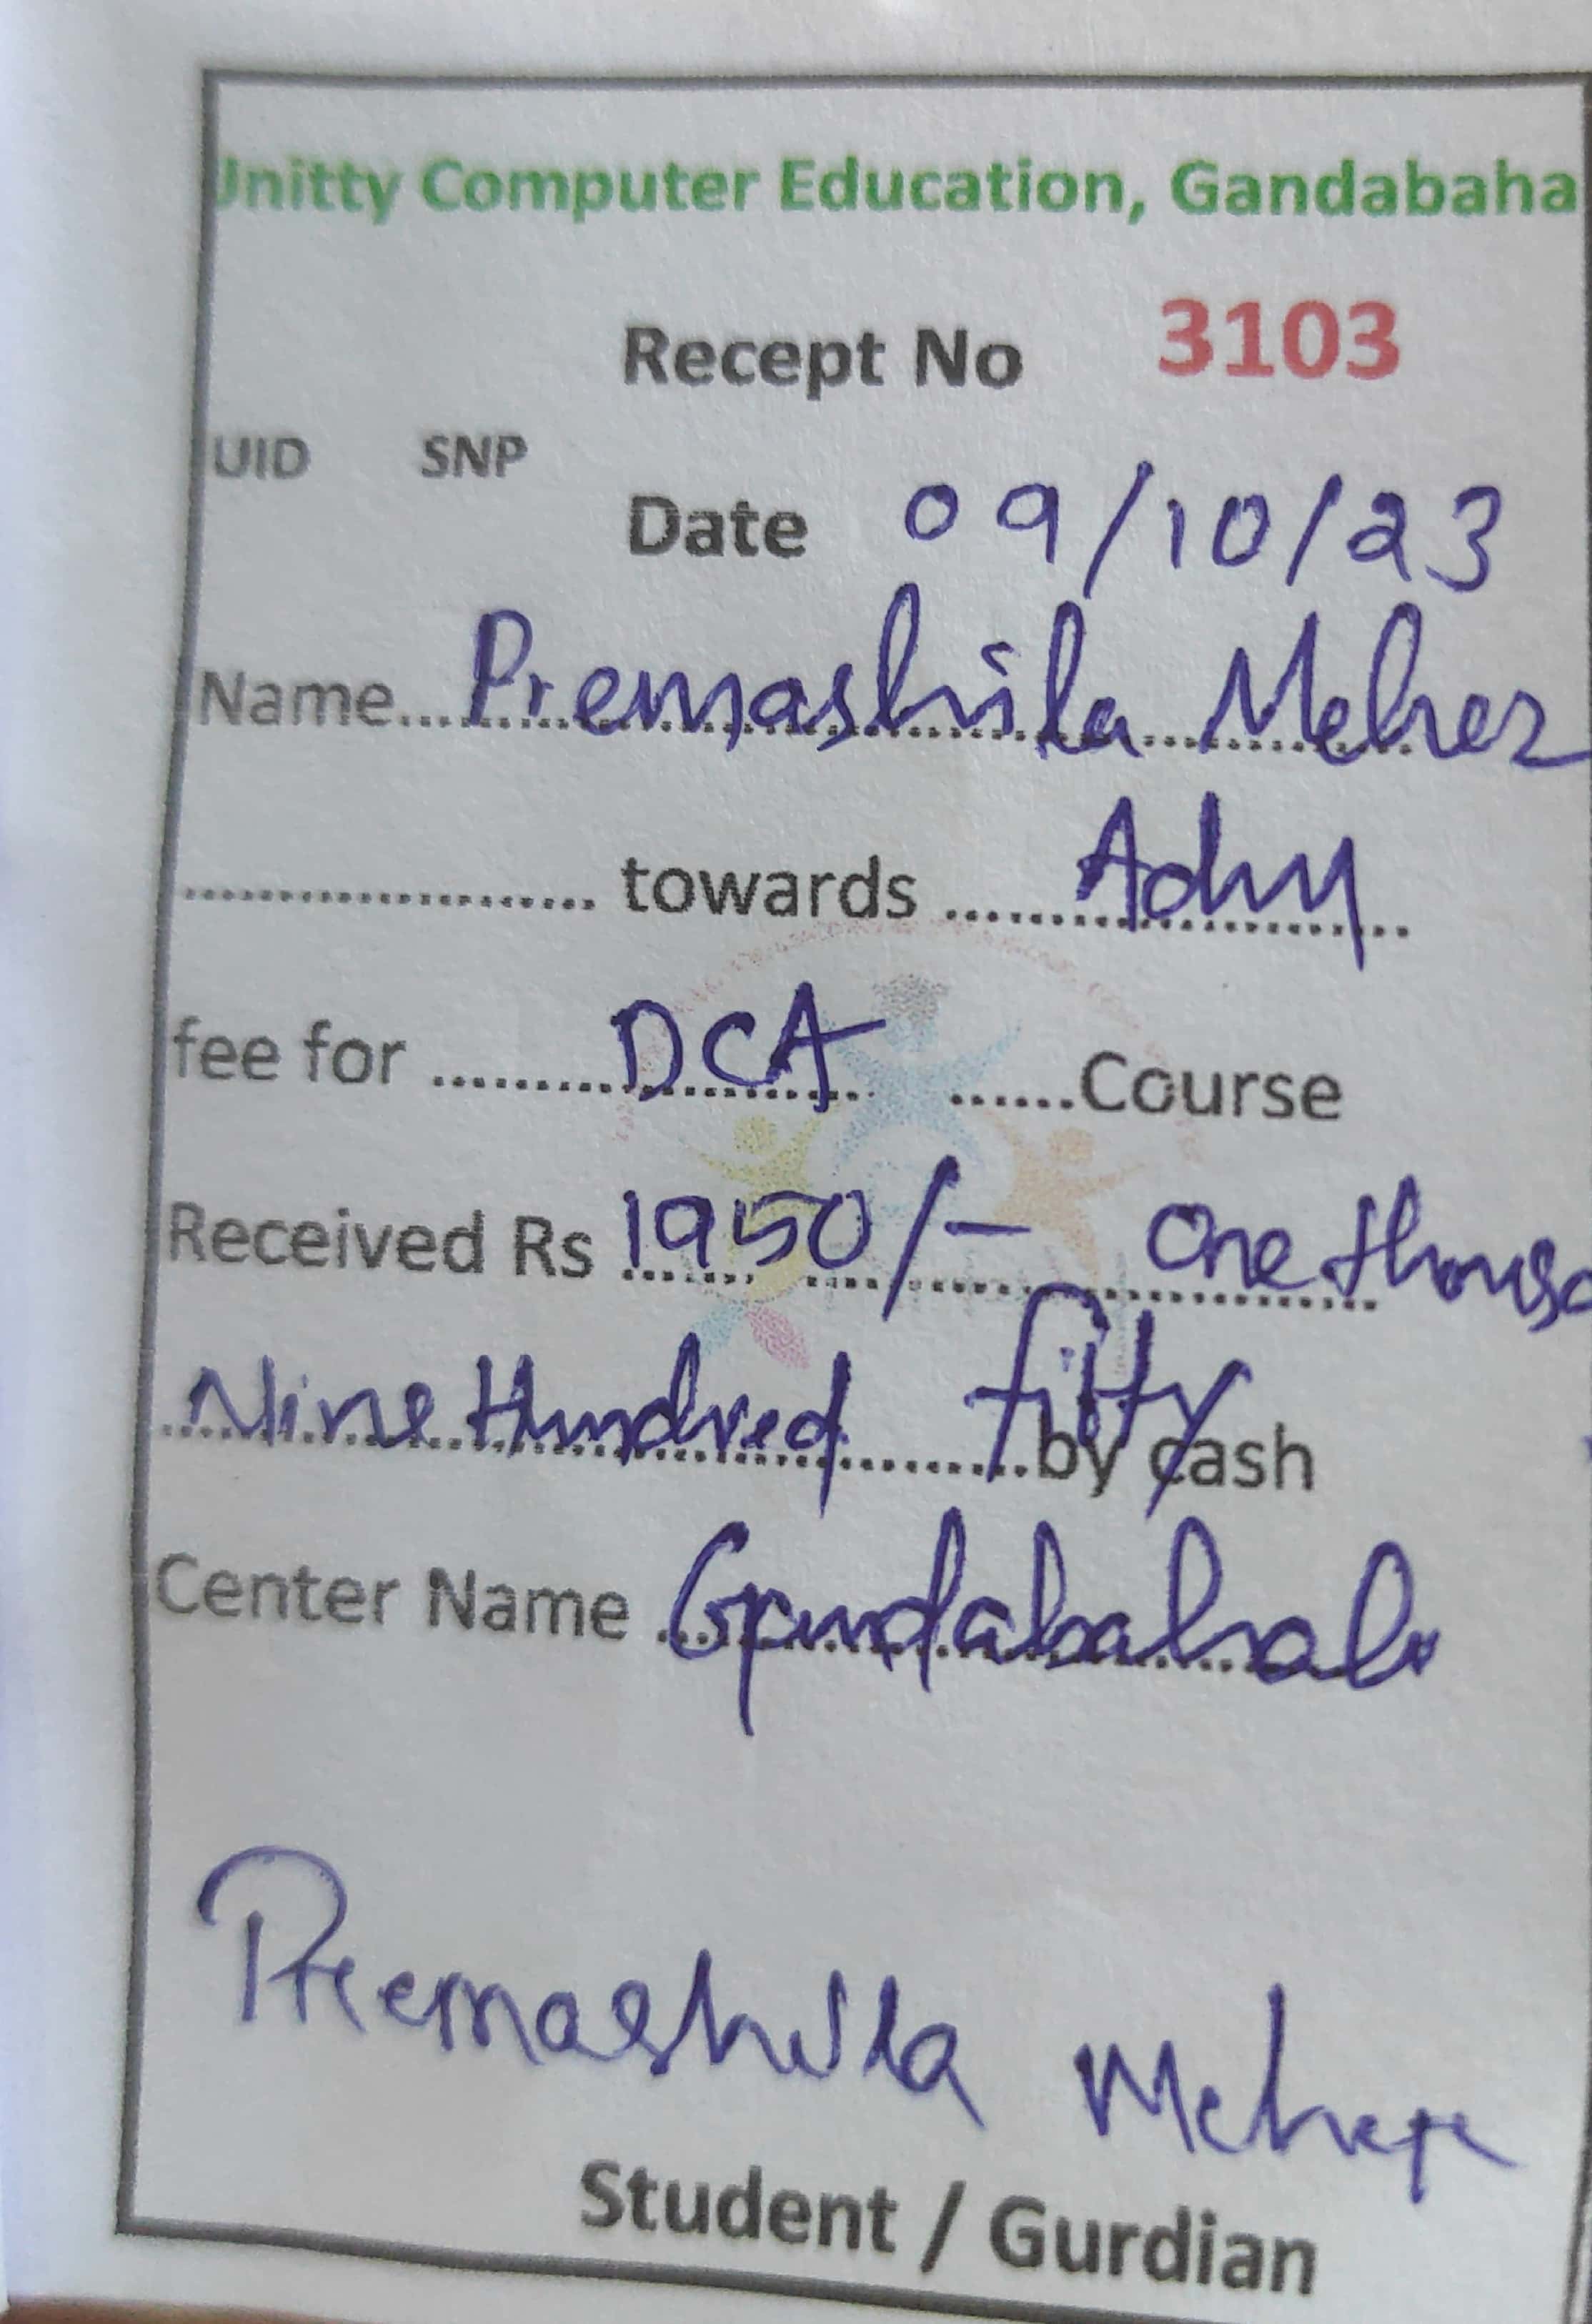 Unitty Computer Education, Gandabaha
Recept No 3103
UID SNP
Date 09/10/23
Name...Premashila Meher
.................... towards ....Adm....
fee for ........DCA.. ......Course
Received Rs 1950/- One thousa
Nine Hundred fifty by cash
Center Name Gandabahali
Premashila Meher
Student / Gurdian